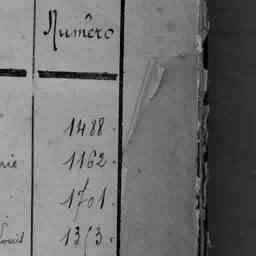 Numéro
1488.
nie 1162.
1701.
Louis 13/3.